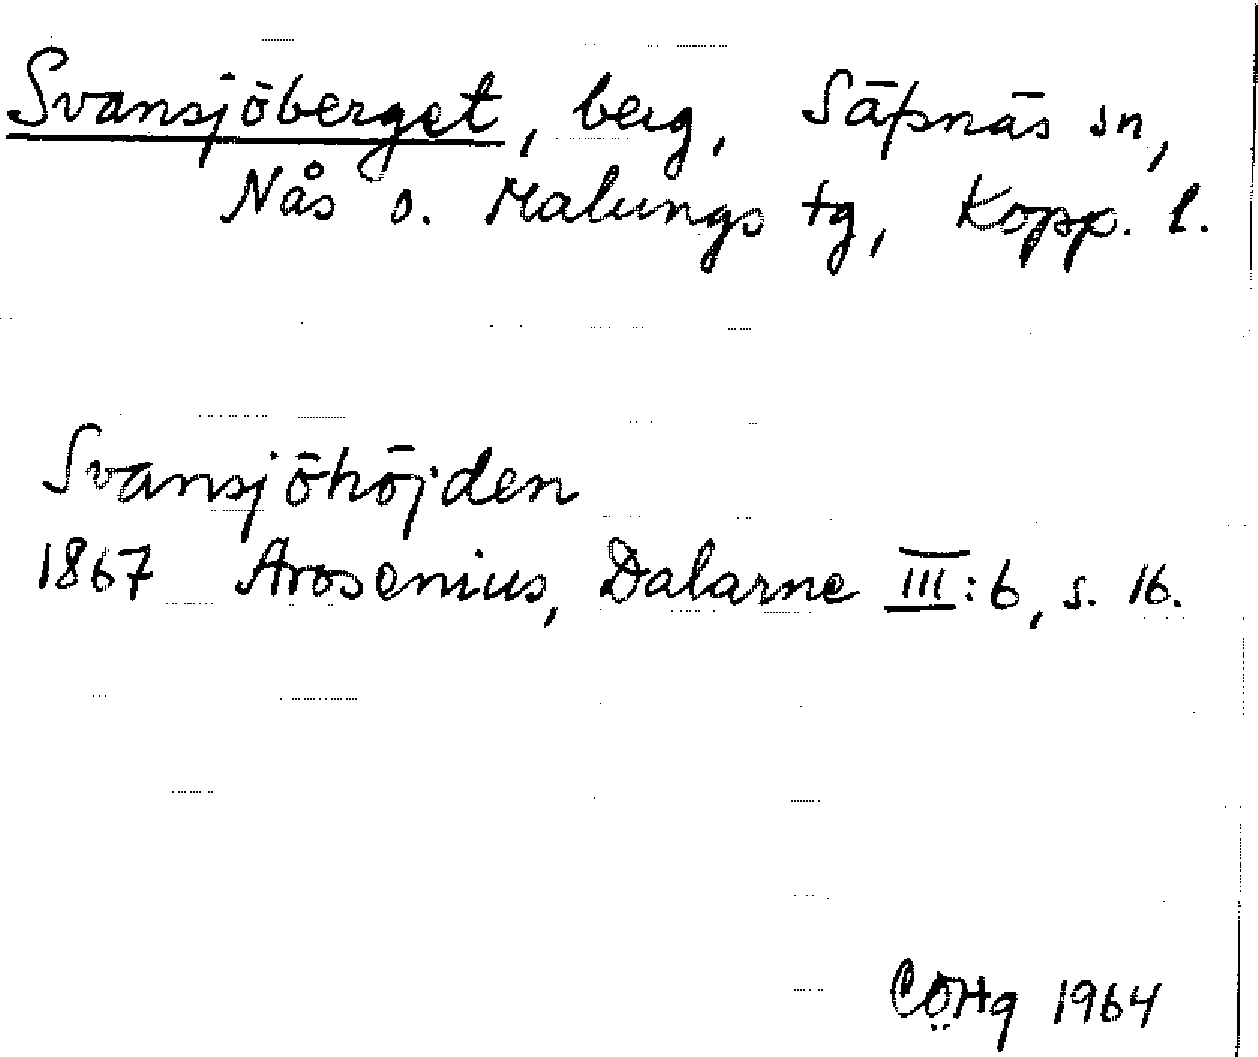 Svansjöberget, berg, Säfsnäs sn,
Nås o. Malungs tg, Kopp. l.
Svansjöhöjden
1867 Arosenius, Dalarne III:6, s. 16.
CÖHg 1964